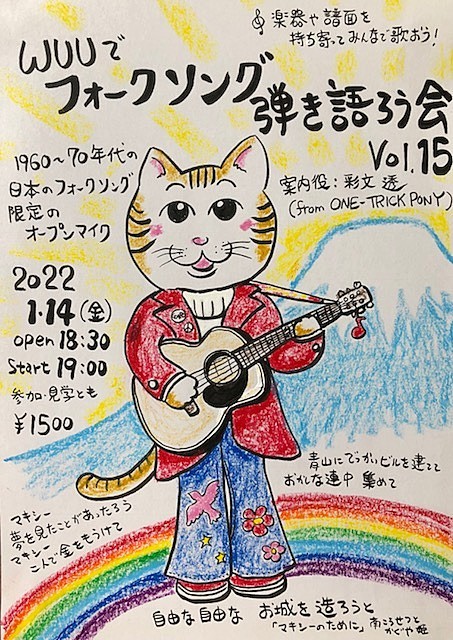 楽器や譜面を
持ち寄ってみんなで歌おう!
WUUで
フォークソング
弾き語ろう会
Vol.15
案内役:彩文 透
(from ONE-TRICK PONY)
1960〜70年代の
日本のフォークソング
限定の
オープンマイク
2022
1・14(金)
open 18:30
Start 19:00
参加・見学とも
¥1500
青山にでっかいビルを建てて
おかしな連中 集めて
マキシー
夢を見たことがあったろう
マキシー
こんで金をもうけて
自由な自由な お城を造ろうと
「マキシーのために」南こうせつと
かぐや姫